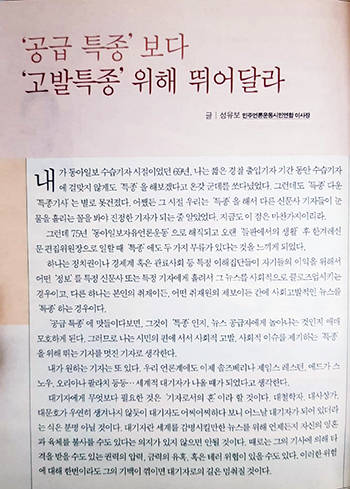 ‘공급 특종’ 보다
‘고발특종’ 위해 뛰어달라
글 | 성유보 민주언론운동시민연합 이사장
내가 동아일보 수습기자 시절이었던 69년, 나는 짧은 경찰 출입기자 기간 동안 수습기자
에 걸맞지 않게도 ‘특종’ 을 해보겠다고 온갖 군데를 쏘다녔었다. 그런데도 ‘특종’ 다운
‘특종기사’ 는 별로 못건졌다. 어쨌든 그 시절 우리는 ‘특종’ 을 해서 다른 신문사 기자들이 눈
물을 흘리는 꼴을 봐야 진정한 기자가 되는 줄 알았었다. 지금도 이 점은 마찬가지리라.
그런데 75년 ‘동아일보자유언론운동’ 으로 해직되고 오랜 ‘들판에서의 생활’ 후 한겨레신
문 편집위원장으로 일할 때 ‘특종’ 에도 두 가지 부류가 있다는 것을 느끼게 되었다.
하나는 정치권이나 경제계 혹은 관료사회 등 특정 이해집단들이 자기들의 이익을 위해서
어떤 ‘정보’ 를 특정 신문사 또는 특정 기자에게 흘려서 그 뉴스를 사회적으로 클로즈업시키는
경우이고, 다른 하나는 본인의 취재이든, 어떤 취재원의 제보이든 간에 사회고발적인 뉴스를
‘특종’ 하는 경우이다.
‘공급 특종’ 에 맛들이다보면, 그것이 ‘특종’ 인지, 뉴스 공급자에게 놀아나는 것인지 애매
모호하게 된다. 그러므로 나는 시민의 편에 서서 사회적 고발, 사회적 이슈를 제기하는 ‘특종’
을 위해 뛰는 기자를 멋진 기자로 생각한다.
내가 원하는 기자는 또 있다. 우리 언론계에도 이제 솔즈베리나 제임스 레스턴, 에드가 스
노우, 오리아나 팔라치 등등… 세계적 대기자가 나올 때가 되었다고 생각한다.
대기자에게 무엇보다 필요한 것은 ‘기자로서의 혼’ 이라 할 것이다. 대철학자, 대사상가,
대문호가 우연히 생겨나지 않듯이 대기자도 어찌어찌하다 보니 어느날 대기자가 되어 있더라
는 식은 분명 아닐 것이다. 대기자란 세계를 감명시킬만한 뉴스를 위해 언제든지 자신의 영혼
과 육체를 불사를 수도 있다는 의지가 있지 않으면 안될 것이다. 때로는 그의 기사에 의해 타
격을 받을 수도 있는 권력의 압력, 금력의 유혹, 혹은 테러 위협이 있을 수도 있다. 이러한 위협
에 대해 한번이라도 그의 기백이 꺾이면 대기자로의 길은 멈춰질 것이다.